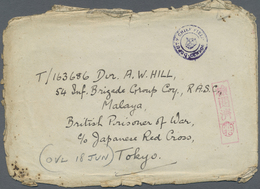 T/163686 Dvr. A. W. HILL,
54 Inf. Brigade Group Coy., R.A.S.C.,
Malaya,
British Prisoner of War,
c/o Japanese Red Cross,
(OVL 18 JUN) Tokyo.